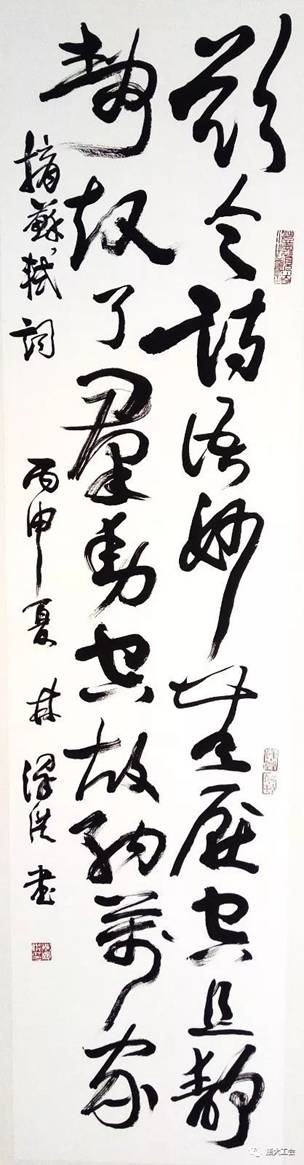 欲令詩語妙無厭空且靜
靜故了羣動空故納萬
摘蘇軾詞 丙申夏 林澤洪書
法大工会